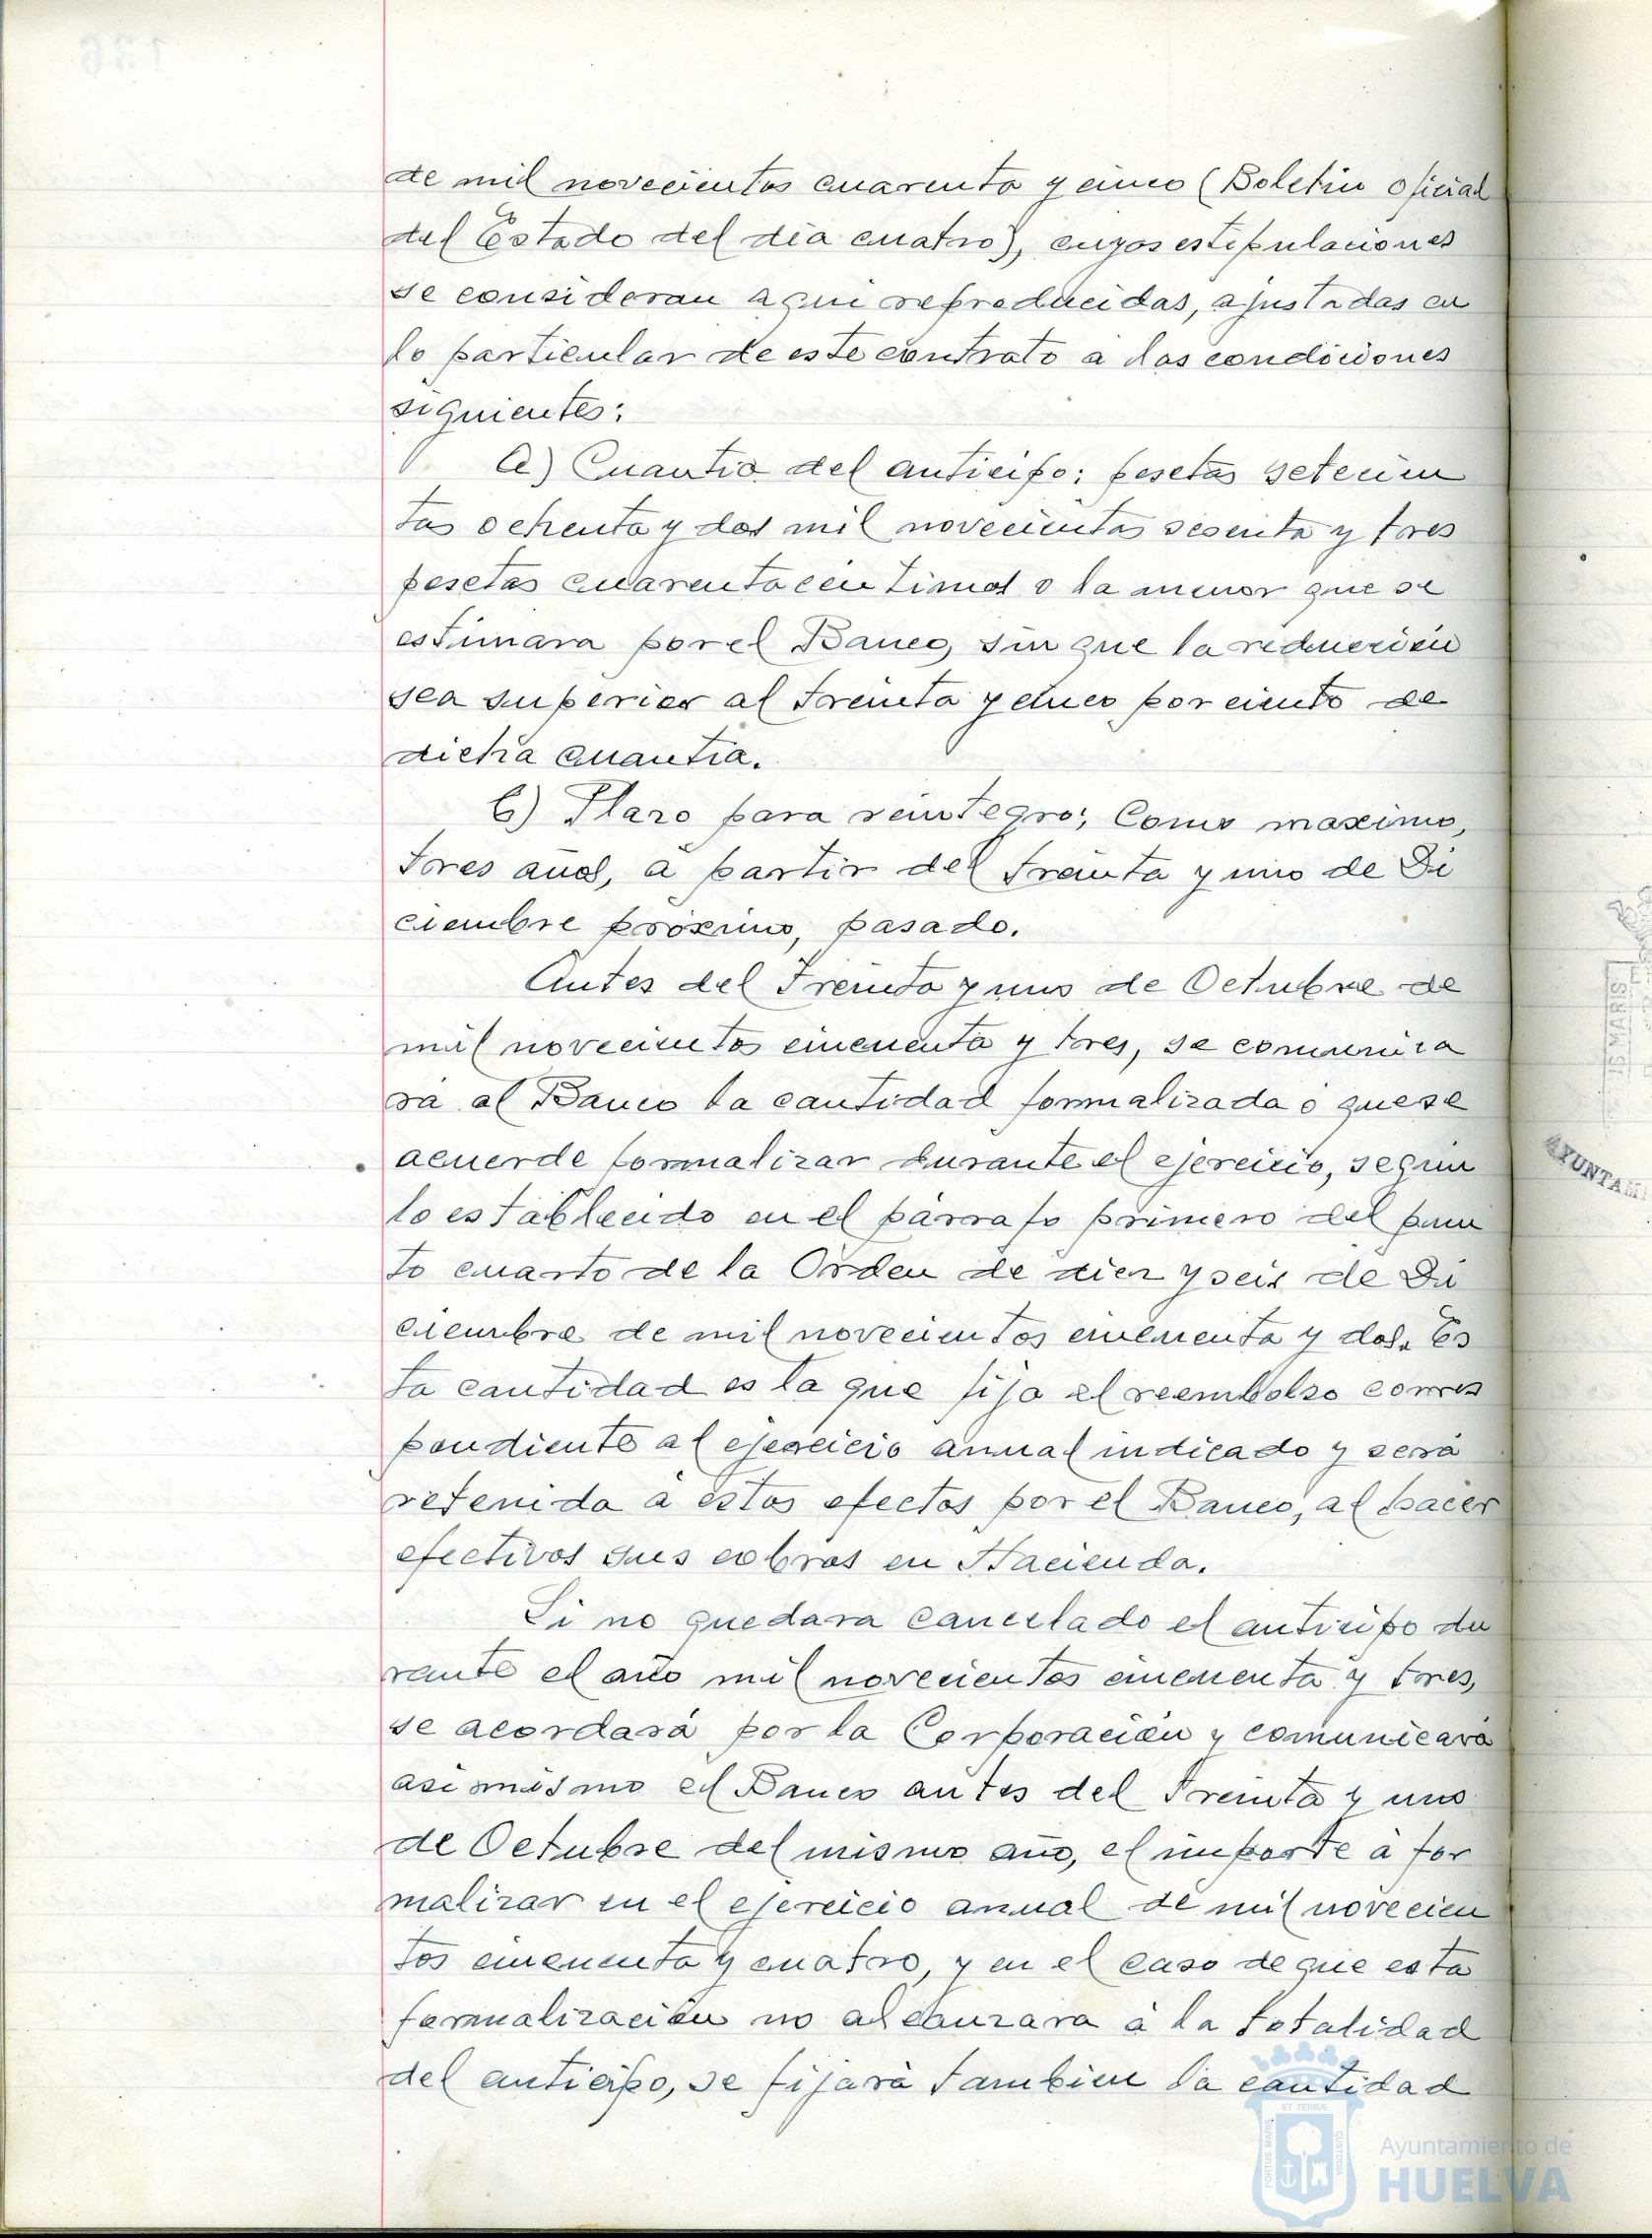 de mil novecientos cuarenta y cinco (Boletin Oficial
del Estado del dia cuatro), cuyas estipulaciones
se consideran aqui reproducidas, ajustadas en
lo particular de este contrato a las condiciones
siguientes:
a) Cuantia del anticipo: pesetas setecien
tas ochenta y dos mil novecientas sesenta y tres
pesetas cuarenta centimos o la menor que se
estimara por el Banco, sin que la reducción
sea superior al treinta y cinco por ciento de
dicha cuantia.
b) Plazo para reintegro: Como maximo,
tres años, a partir del treinta y uno de Di
ciembre próximo, pasado.
Antes del treinta y uno de Octubre de
mil novecientos cincuenta y tres, se comunica
rá al Banco la cantidad formalizada o que se
acuerde formalizar durante el ejercicio, segun
lo establecido en el párrafo primero del pun
to cuarto de la Orden de diez y seis de Di
ciembre de mil novecientos cincuenta y dos. Es
ta cantidad es la que fija el reembolso corres
pondiente al ejercicio anual indicado y será
retenida a estos efectos por el Banco, al hacer
efectivos sus cobros en Hacienda.
Si no quedara cancelado el anticipo du
rante el año mil novecientos cincuenta y tres,
se acordará por la Corporación y comunicará
asi mismo al Banco antes del treinta y uno
de Octubre del mismo año, el importe a for
malizar en el ejercicio anual de mil novecien
tos cincuenta y cuatro, y en el caso de que esta
formalización no alcanzara a la totalidad
del anticipo, se fijará tambien la cantidad
136
AYUNTAM
IS MARIS
ET TERRÆ
PORTUS MARIS
CUSTODIA
Ayuntamiento de
HUELVA